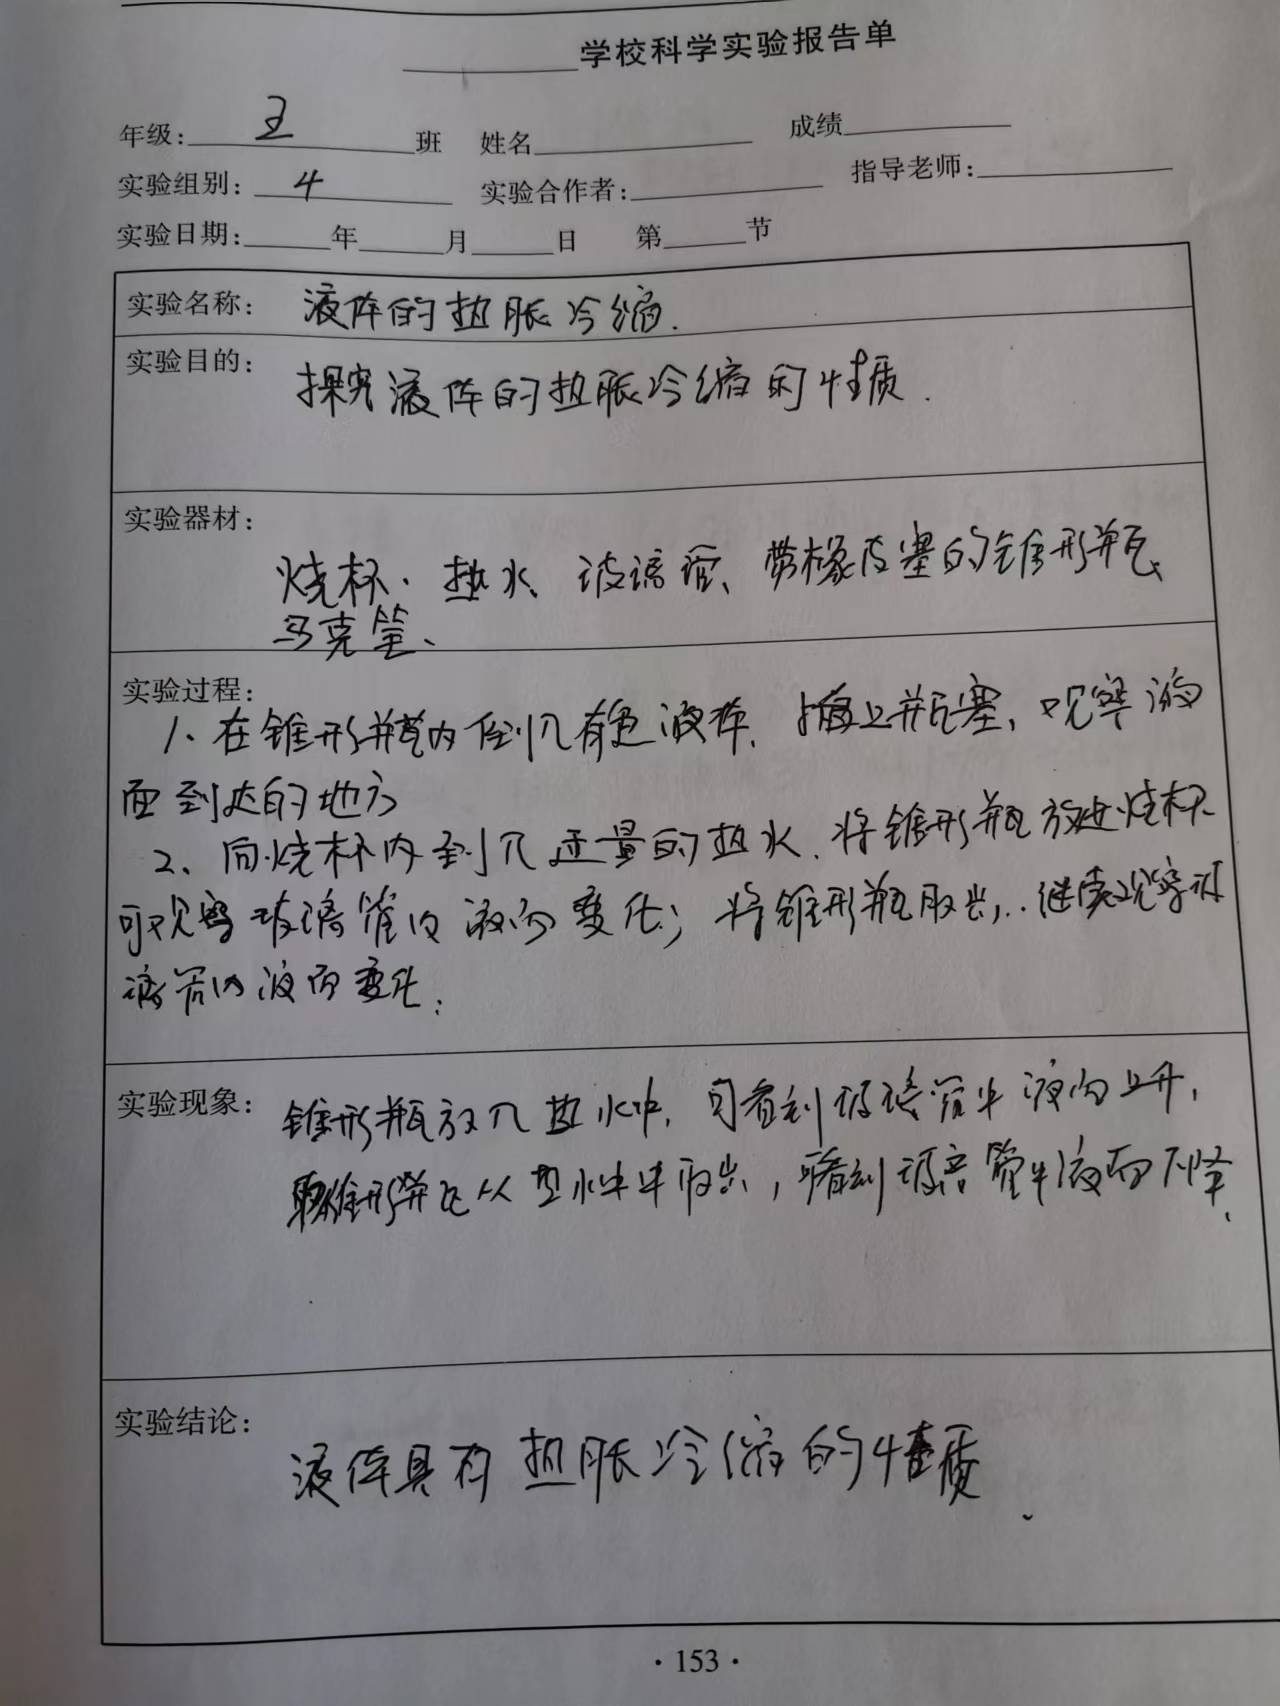 学校科学实验报告单
年级: 五 班 姓名 成绩
实验组别: 4 实验合作者: 指导老师:
实验日期: 年 月 日 第 节
实验名称: 液体的热胀冷缩.
实验目的: 探究液体的热胀冷缩的性质.
实验器材:
烧杯、热水、玻璃管、带橡皮塞的锥形瓶、
马克笔、
实验过程:
1、在锥形瓶内倒入有色液体、插上瓶塞、观察液
面到达的地方
2、向烧杯内到入适量的热水、将锥形瓶放进烧杯
可观察玻璃管内液面变化; 将锥形瓶取出,..继续观察玻
璃管内液面变化;
实验现象: 锥形瓶放入热水中, 可看到玻璃管中液面上升,
锥形瓶从热水中取出, 看到玻璃管中液面下降、
实验结论:
液体具有热胀冷缩的性质、
·153·